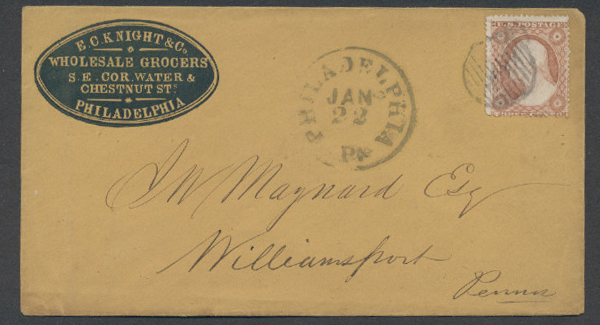 E.C. KNIGHT & Co.
WHOLESALE GROCERS
S.E. COR. WATER &
CHESTNUT STS
PHILADELPHIA
PHILADELPHIA
JAN
22
Pa
U.S. POSTAGE
THREE CENTS
J W Maynard Esq
Williamsport
Penna